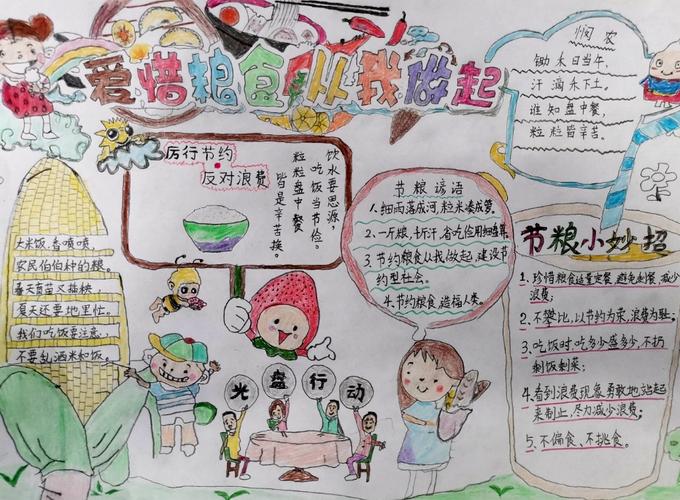 爱惜粮食从我做起
悯农
锄禾日当午,
汗滴禾下土。
谁知盘中餐,
粒粒皆辛苦。
厉行节约
反对浪费
饮水要思源,
吃饭当节俭。
粒粒盘中餐
皆是辛苦换。
大米饭,香喷喷
农民伯伯种的粮。
春天育苗又插秧,
夏天还要地里忙。
我们吃饭要注意,
不要乱洒米和饭。
节粮谚语
1.细雨落成河,粒米凑成箩。
2.一斤粮,千斤汗,省吃俭用细
3.节约粮食从我做起,建设节
约型社会。
4.节约粮食造福人类。
光盘行动
节粮小妙招
1、珍惜粮食适量定餐,避免剩餐,减少
浪费;
2.不攀比,以节约为荣,浪费为耻;
3、吃饭时,吃多少盛多少,不扔
剩饭剩菜;
4.看到浪费现象勇敢地站起
来制止,尽力减少浪费;
5、不偏食、不挑食。